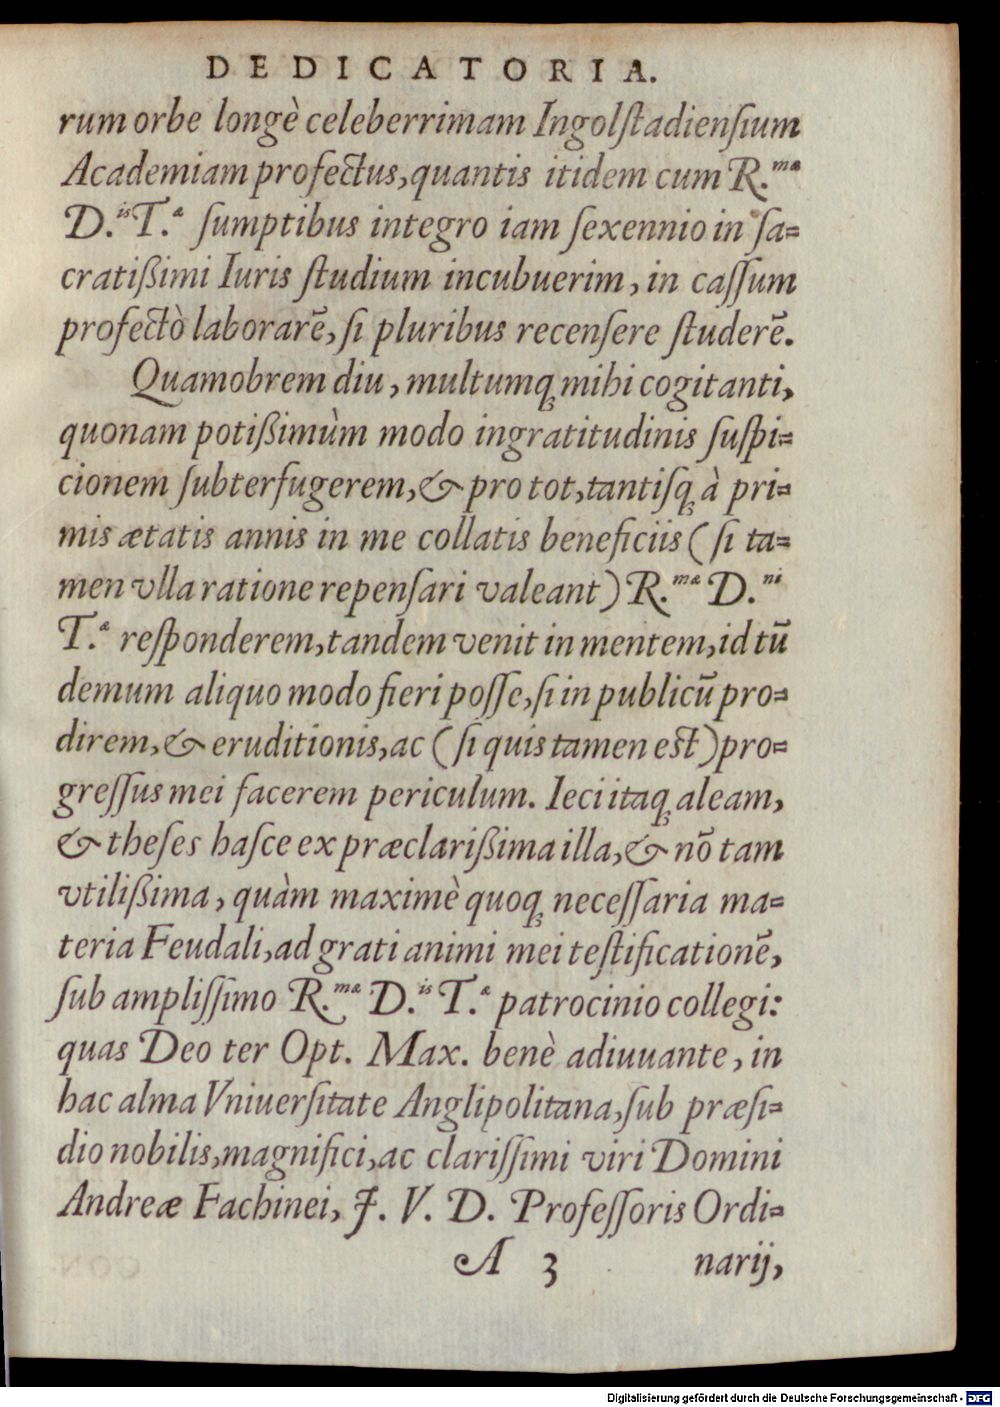 DEDICATORIA.
rum orbe longè celeberrimam Ingolſtadienſium
Academiam profectus, quantis itidem cum R.ma
D.is T.a ſumptibus integro iam ſexennio in ſa=
cratißimi Iuris ſtudium incubuerim, in caſſum
profectò laborarē, ſi pluribus recenſere ſtuderē.
Quamobrem diu, multumq; mihi cogitanti,
quonam potißimùm modo ingratitudinis ſuſpi=
cionem ſubterfugerem, & pro tot, tantiſq; à pri=
mis ætatis annis in me collatis beneficiis (ſi ta=
men vlla ratione repenſari valeant) R.ma D.ni
T.a reſponderem, tandem venit in mentem, id tū
demum aliquo modo fieri poſſe, ſi in publicū pro=
direm, & eruditionis, ac (ſi quis tamen est) pro=
greſſus mei facerem periculum. Ieci itaq; aleam,
& theſes haſce ex præclarißima illa, & nō tam
vtilißima, quàm maximè quoq; neceſſaria ma=
teria Feudali, ad grati animi mei teſtificationē,
ſub ampliſſimo R.ma D.is T.a patrocinio collegi:
quas Deo ter Opt. Max. benè adiuuante, in
hac alma Vniuerſitate Anglipolitana, ſub præſi=
dio nobilis, magnifici, ac clariſſimi viri Domini
Andreæ Fachinei, J. V. D. Profeſſoris Ordi=
A 3 narij,
Digitalisierung gefördert durch die Deutsche Forschungsgemeinschaft - DFG